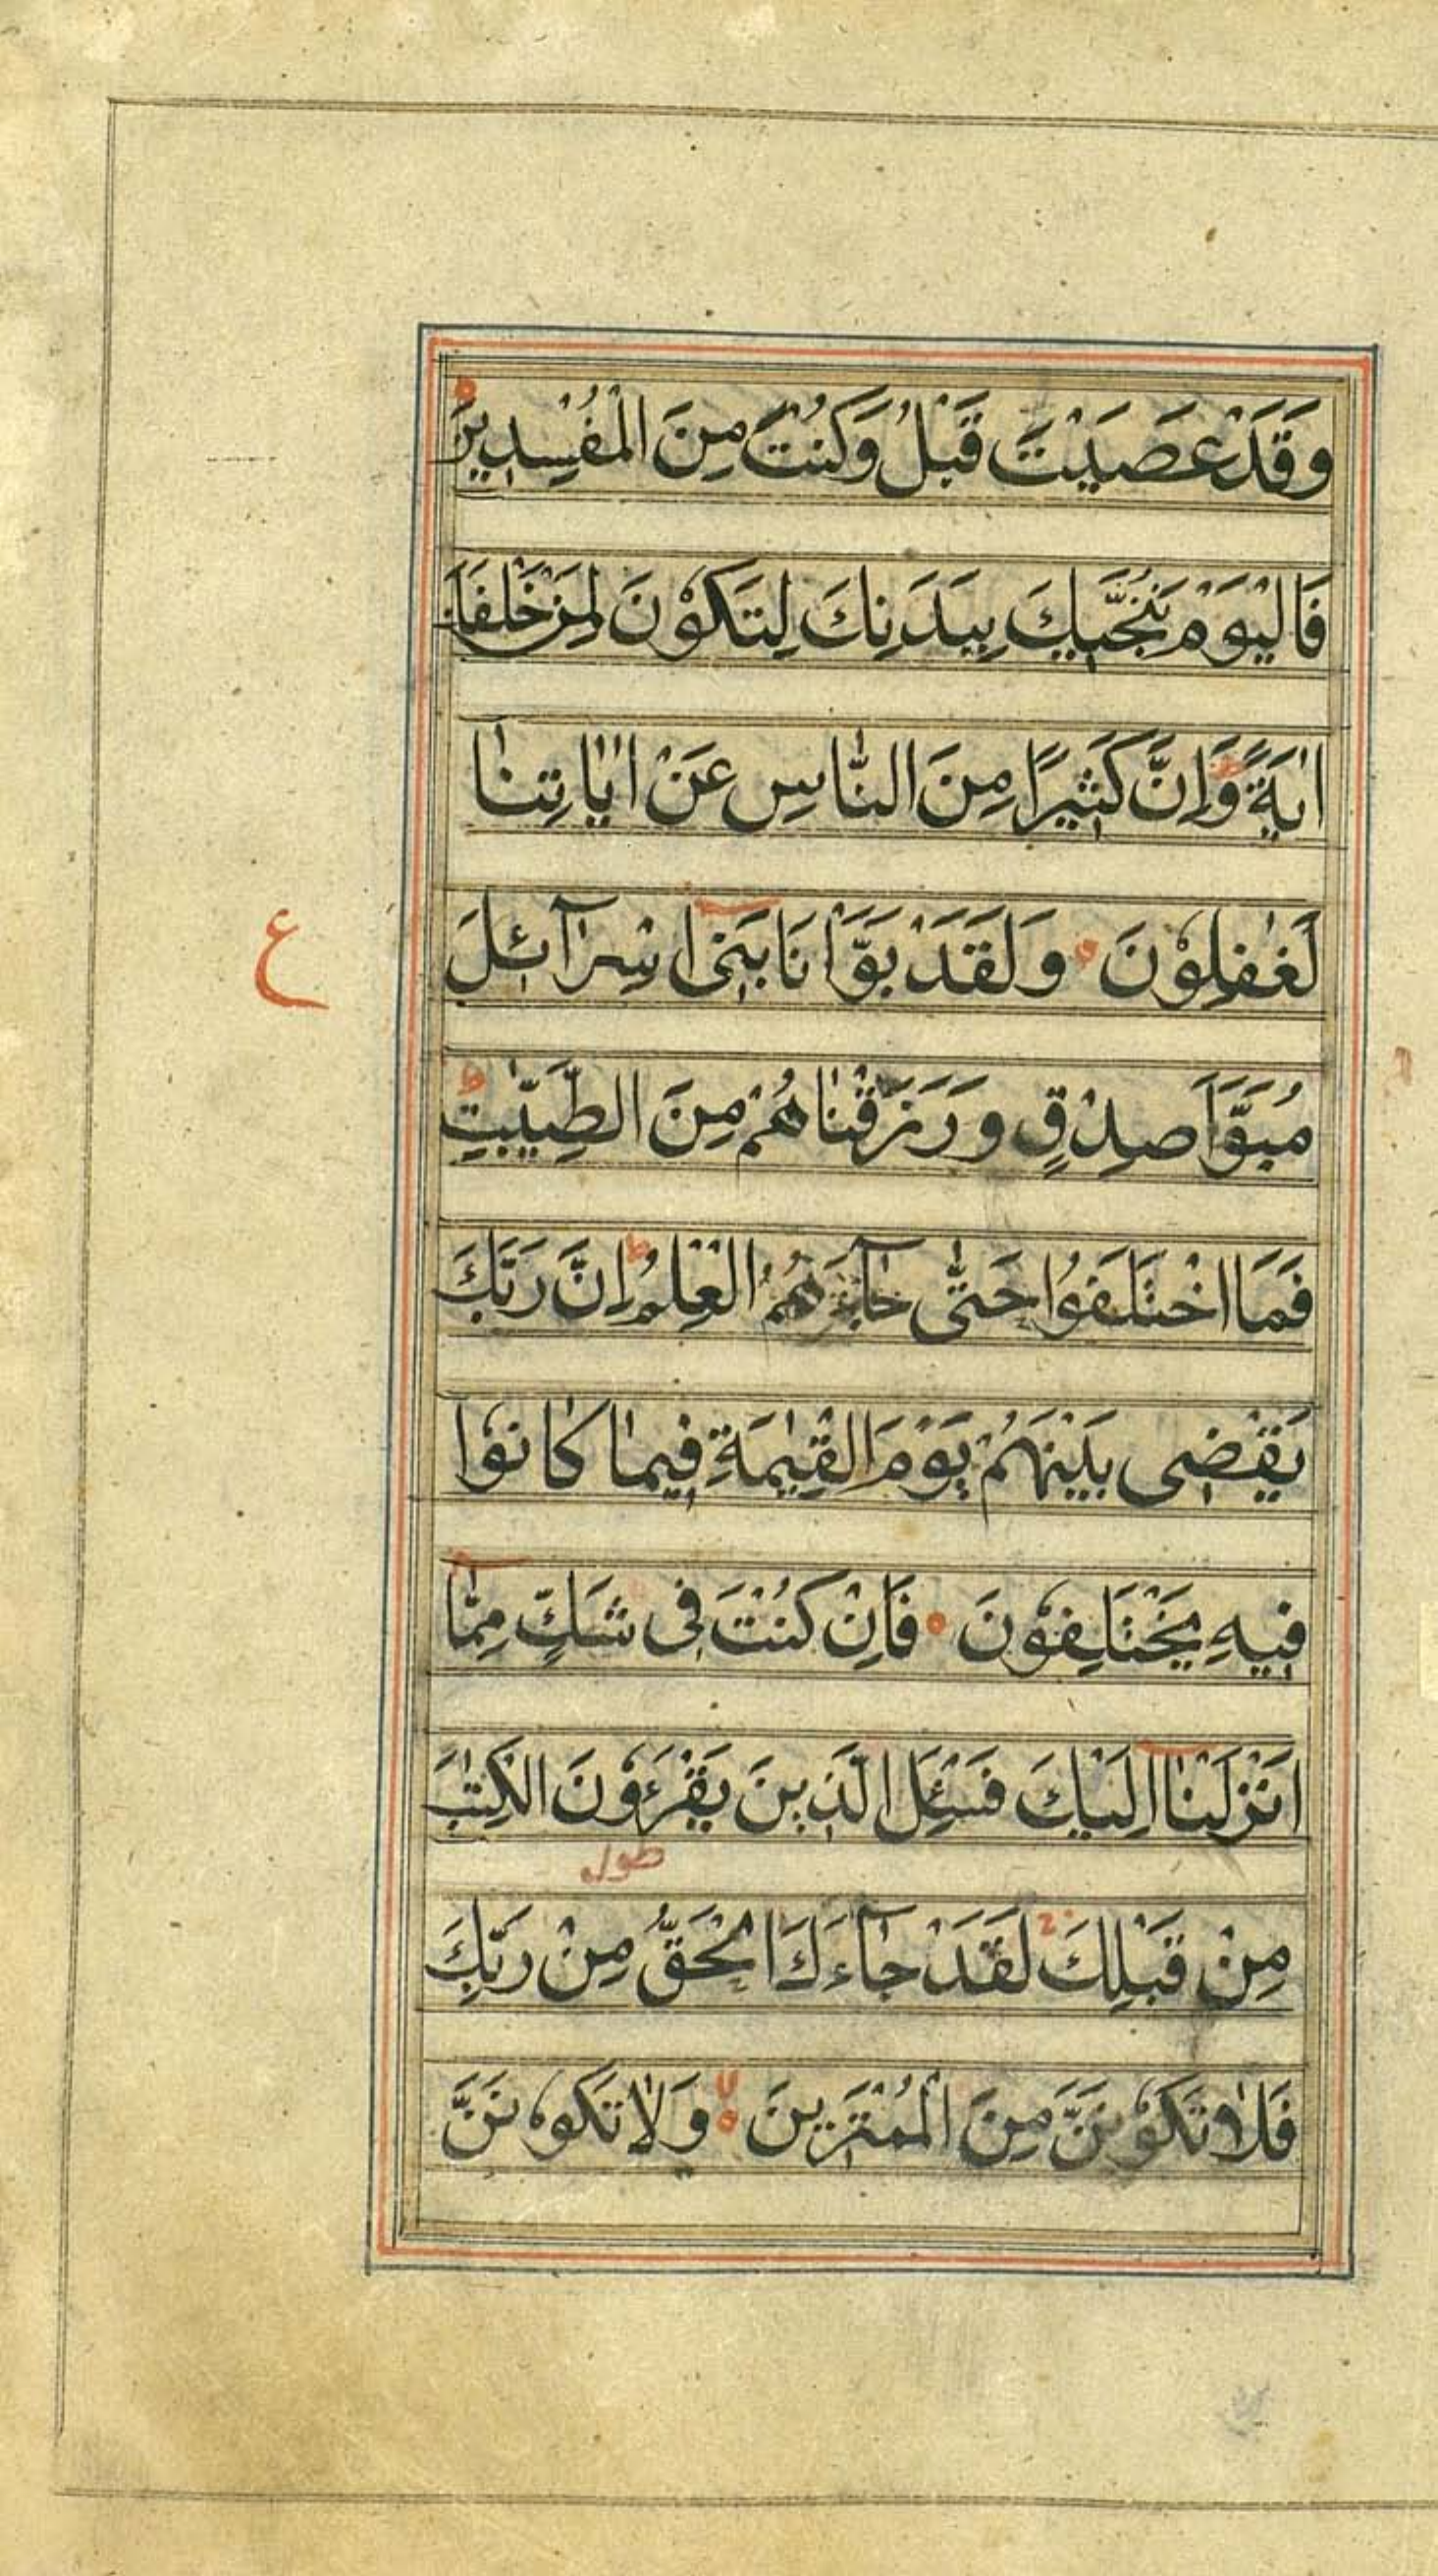 وَقَدْ عَصَيْتَ قَبْلُ وَكُنْتَ مِنَ الْمُفْسِدِينَ
فَالْيَوْمَ نُنَجِّيكَ بِبَدَنِكَ لِتَكُوْنَ لِمَنْ خَلْفَكَ
اٰيَةً ط وَاِنَّ كَثِيرًا مِنَ النَّاسِ عَنْ اٰيَاتِنٰا
لَغٰفِلِوُْنَ وَلَقَدْ بَوَّاْنَا بَنِىْ اِسْرآئلَ
ع
مُبَوَّاَ صِدْقٍ وَرَزَقْنٰاهُمْ مِنَ الطَّيِّبٰتِ ط
فَمَا اخْتَلَفُوْا حَتّٰى جٰآءَهُمُ الْعِلْمُ ط اِنَّ رَبَّكَ
يَقْضِى بَيْنَهُمْ يَوْمَ الْقِيٰمَةِ فِيمٰا كٰانُوْا
فِيهِ يَخْتَلِفُوْنَ فَاِنْ كُنْتَ فِى شَكٍّ مِمّٰا
اَنْزَلْنٰا اِلَيْكَ فَسْئَلِ الَّذِينَ يَقْرَءُوْنَ الْكِتٰبَ
مِنْ قَبْلِكَ لَقَدْ جٰآءَكَ الْحَقُّ مِنْ رَبِّكَ
فَلٰا تَكُوْنَنَّ مِنَ الْمُمْتَرِينَ لا وَلٰا تَكُوْنَنَّ